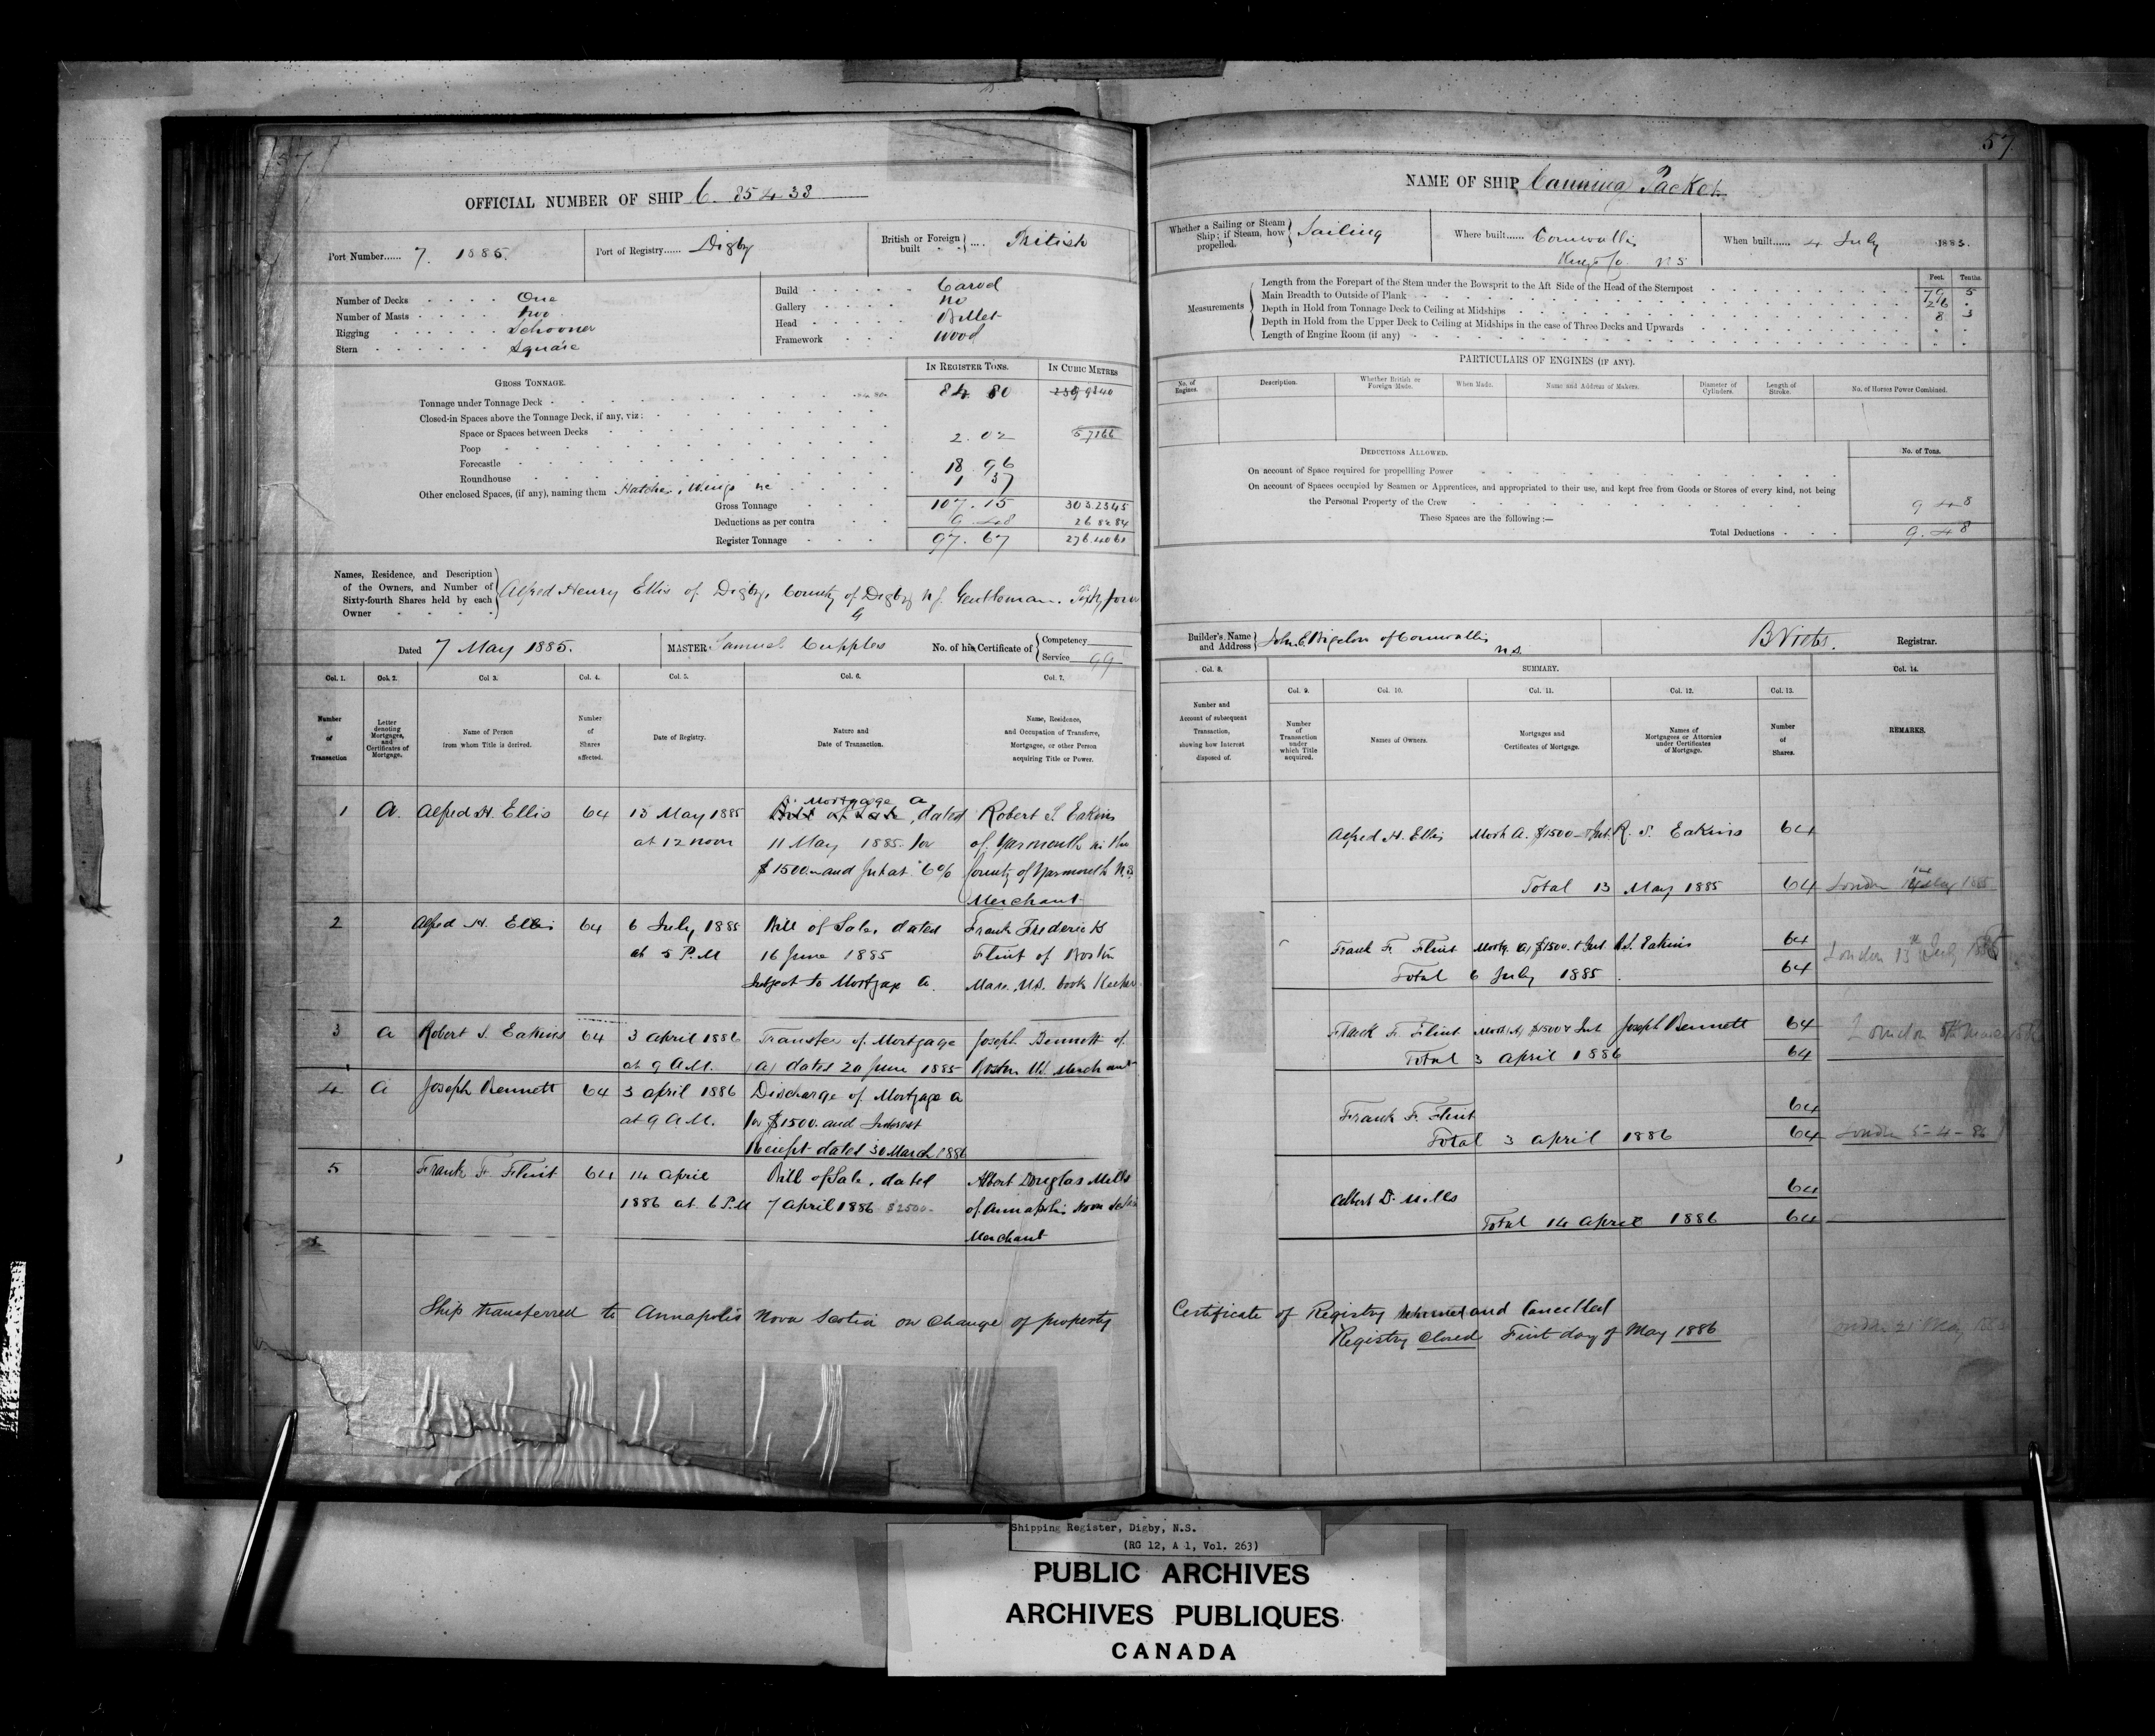 57
OFFICIAL NUMBER OF SHIP C. 85438
Port Number...... 7. 1885.
Port of Registry...... Digby
British or Foreign built .... British
Number of Decks One
Number of Masts Two
Rigging Schooner
Stern Square
Build Carvel
Gallery No
Head Billet
Framework Wood
IN REGISTER TONS. IN CUBIC METRES
GROSS TONNAGE.
Tonnage under Tonnage Deck 84 80
Closed-in Spaces above the Tonnage Deck, if any, viz:
Space or Spaces between Decks
2.02 57166
Poop
Forecastle 18 96
Roundhouse
Other enclosed Spaces, (if any), naming them Hatches, Wings &c 1 37
Gross Tonnage 107.15 303.2345
Deductions as per contra 9 48 26 8284
Register Tonnage 97.67 276.4061
Names, Residence, and Description
of the Owners, and Number of
Sixty-fourth Shares held by each
Owner
Alfred Henry Ellis of Digby, County of Digby N.S. Gentleman. Sixty four
64
Dated 7 May 1885.
MASTER Samuel Cupples
No. of his Certificate of Competency
Service 99
Col. 1. Col. 2. Col 3. Col. 4. Col. 5. Col. 6. Col. 7.
Number of Transaction
Letter denoting Mortgages, and Certificates of Mortgage.
Name of Person from whom Title is derived.
Number of Shares affected.
Date of Registry.
Nature and Date of Transaction.
Name, Residence, and Occupation of Transferee, Mortgagee, or other Person acquiring Title or Power.
1 A. Alfred H. Ellis 64 13 May 1885 Mortgage A Bill of Sale, dated Robert S. Eakins
at 12 noon 11 May 1885 for of Yarmouth in the
$1500.- and Int at 6% County of Yarmouth N.S.
Merchant
2 Alfred H. Ellis 64 6 July 1885 Bill of Sale, dated Frank Frederick
at 5 P.M 16 June 1885 Flint of Boston
Subject to Mortgage A. Mass. U.S. book keeper
3 A Robert S. Eakins 64 3 April 1886 Transfer of Mortgage Joseph Bennett of
at 9 A.M. (A) dated 20 June 1885 Boston U.S. Merchant
4 A Joseph Bennett 64 3 April 1886 Discharge of Mortgage A
at 9 A.M. for $1500. and Interest
Receipt dated 30 March 1886
5 Frank F. Flint 64 14 April Bill of Sale, dated Albert Douglas Mills
1886 at 6 P.M 7 April 1886 $2500.- of Annapolis Nova Scotia
Merchant
Ship transferred to Annapolis Nova Scotia on change of property
57
NAME OF SHIP Canning Packet
Whether a Sailing or Steam Ship; if Steam, how propelled. Sailing
Where built...... Cornwallis
Kings Co. N S
When built...... 4 July 1883.
Measurements
Feet. Tenths.
Length from the Forepart of the Stem under the Bowsprit to the Aft Side of the Head of the Sternpost 79 5
Main Breadth to Outside of Plank 26 .
Depth in Hold from Tonnage Deck to Ceiling at Midships 8 3
Depth in Hold from the Upper Deck to Ceiling at Midships in the case of Three Decks and Upwards
Length of Engine Room (if any)
PARTICULARS OF ENGINES (IF ANY).
No. of Engines. Description. Whether British or Foreign Made. When Made. Name and Address of Makers. Diameter of Cylinders. Length of Stroke. No. of Horses Power Combined.
DEDUCTIONS ALLOWED. No. of Tons.
On account of Space required for propelling Power
On account of Spaces occupied by Seamen or Apprentices, and appropriated to their use, and kept free from Goods or Stores of every kind, not being
the Personal Property of the Crew 9 48
These Spaces are the following:—
Total Deductions 9.48
Builder's Name and Address John E Bigelow of Cornwallis
N.S.
Registrar.
Col. 8. SUMMARY. Col. 14.
Col. 9. Col. 10. Col. 11. Col. 12. Col. 13.
Number and Account of subsequent Transaction, showing how Interest disposed of.
Number of Transaction under which Title acquired.
Names of Owners.
Mortgages and Certificates of Mortgage.
Names of Mortgagees or Attornies under Certificates of Mortgage.
Number of Shares.
REMARKS.
Alfred H. Ellis Mort A. $1500 & Int. R. S. Eakins 64
Total 13 May 1885 64 London
Frank F. Flint Mortg. (A) $1500. & Int R.S. Eakins 64
Total 6 July 1885. 64 London 13th July 1885
Frank F. Flint Mort (A) $1500 & Int Joseph Bennett 64
Total 3 April 1886 64 London
Frank F. Flint 64
Total 3 April 1886 64 London 5-4-86
Albert D. Mills 64
Total 14 April 1886 64
Certificate of Registry returned and Cancelled
Registry Closed First day of May 1886
Shipping Register, Digby, N.S.
(RG 12, A 1, Vol. 263)
PUBLIC ARCHIVES
ARCHIVES PUBLIQUES
CANADA